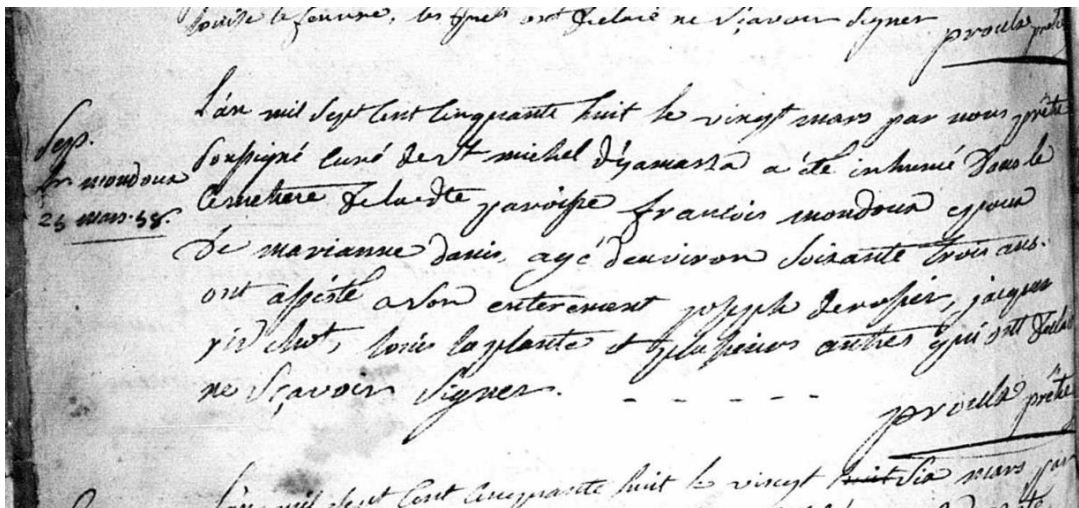 Louise le febvre, les quels ont declaré ne sçavoir signer
proulx prêtre
L'an mil sept cent cinquante huit le vingt mars par nous prêtre
Sep.
fr mondoux
25 mars. 58.
soussigné curé de st michel d'yamaska a été inhumé dans le
cemetiere de la dte paroisse francois mondoux epoux
de marianne danis, agé d'environ soixante trois ans.
ont assisté a son enterement joseph derosier, jacques
louis la plante et plusieurs autres qui ont declaré
ne sçavoir signer. - - - - -
proulx prêtre
L'an mil sept cent cinquante huit le vingt huit six mars par